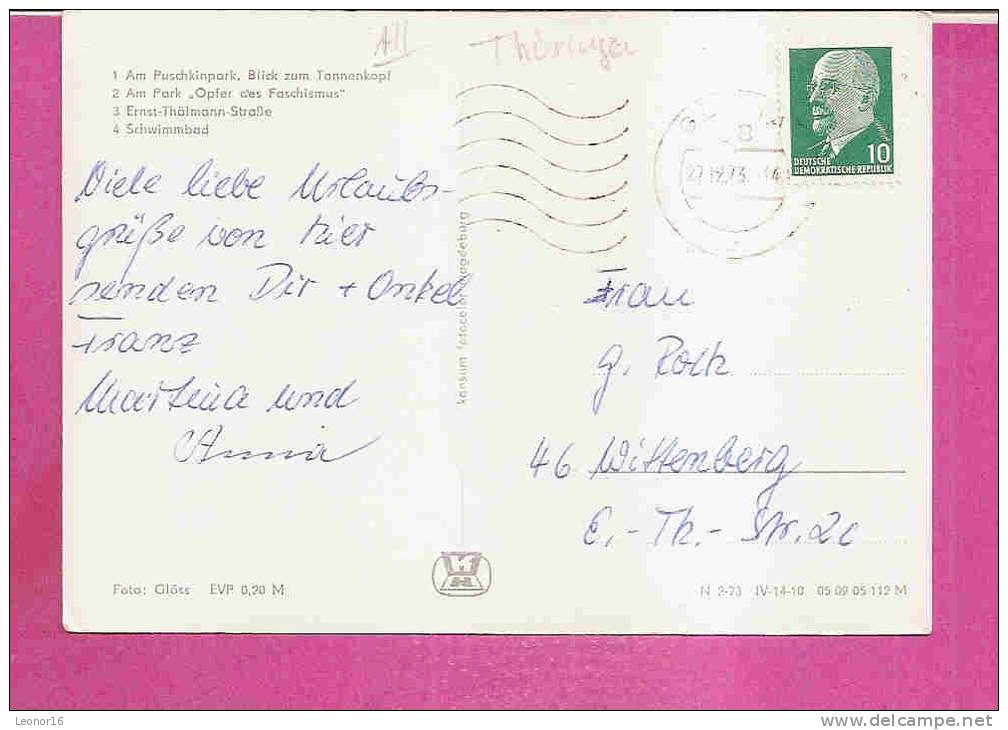 Thüringen
1 Am Puschkinpark, Blick zum Tannenkopf
2 Am Park „Opfer des Faschismus"
3 Ernst-Thälmann-Straße
4 Schwimmbad
Viele liebe Urlaubs-
grüße von hier
senden Dir + Onkel
Franz
Martina und
Anna
konsum fotocolor magdeburg
27.12.73
10
DEUTSCHE
DEMOKRATISCHE REPUBLIK
Frau
G. Roth
46 Wittenberg
E.-Th.-Str. 2c
Foto: Glöss EVP 0,20 M
N 2-73 IV-14-10 05 09 05 112 M
Leonor16
www.delcampe.net